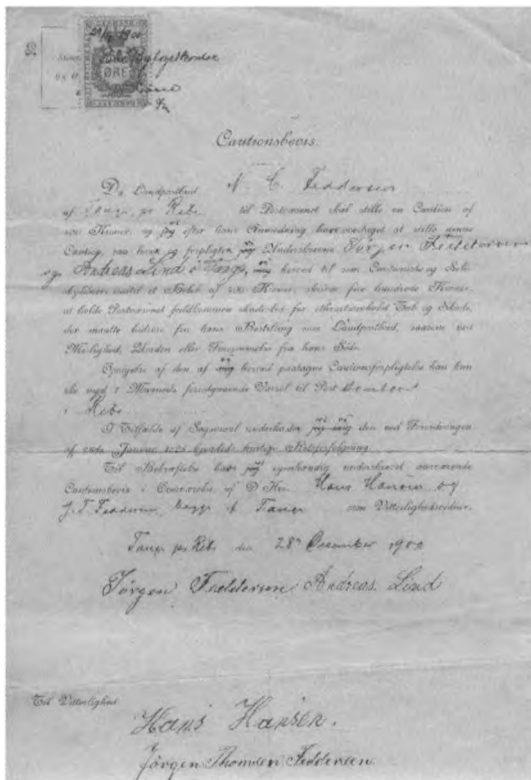 ØRE
Cautionsbevis.
Da Landpostbud N. C. Feddersen
af Tange pr Ribe til Postvæsenet skal stille en Caution af
200 Kroner, og efter hans Anmodning have at stille denne
Caution, saa forpligter Undertegnede Jørgen Feddersen
og Andreas Lind i Tange, herved til som Cautionist og Selv-
skyldner indtil et Beløb af 200 Kroner, skriver To hundrede Kroner,
at holde Postvæsenet fuldkommen skadesløs for ethvert Tab og Skade,
der maatte lidetes for hans Bestilling som Landpostbud, saasom ved
Uefterrettelighed, Uorden eller Forsømmelse fra hans Side.
Opsigelse af den af herved paatagne Cautionsforpligtelse kan kun
ske med 3 Maaneds foregaaende Varsel til Postkontoret
i Ribe
I Tilfælde af Søgsmaal underkaster den ved Forordningen
af 28de Januar hjemlede hurtige Retsforfølgning.
Til Bekræftelse have egenhændig underskrevet nærværende
Cautionsbevis i Overværelse af D'Hrr. Hans Hansen og
J. T. Feddersen begge af Tange som Vitterlighedsvidner.
Tange pr Ribe den 28' December 1900
Jørgen Feddersen Andreas Lind
Til Vitterlighed
Hans Hansen.
Jørgen Thomsen Feddersen